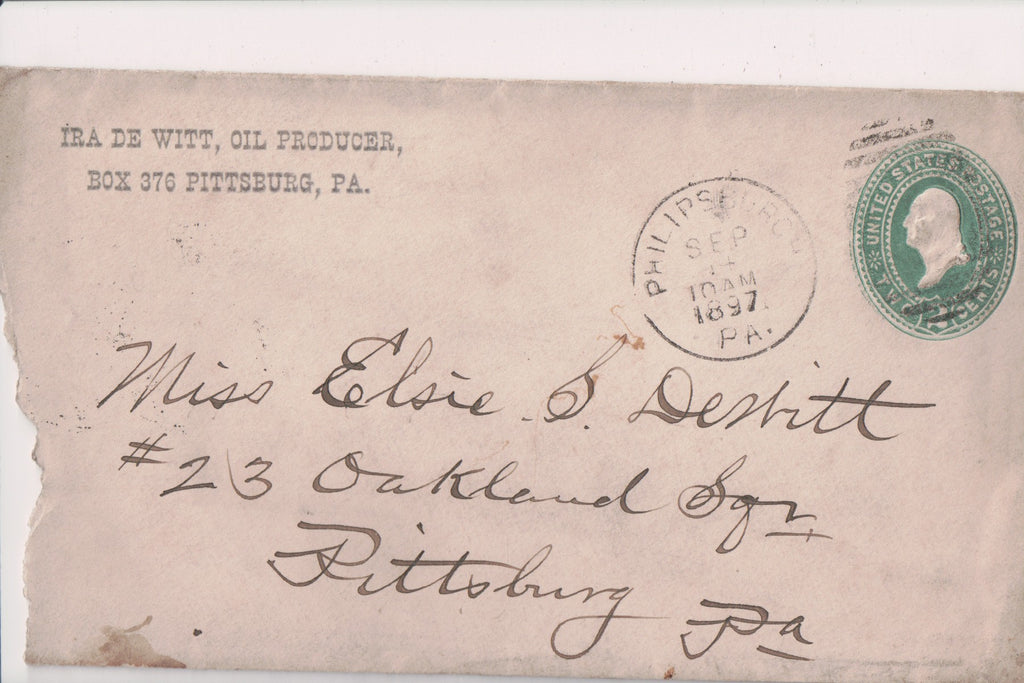 IRA DE WITT, OIL PRODUCER,
BOX 376 PITTSBURG, PA.
PHILIPSBURG
SEP
11
10AM
1897.
PA.
UNITED STATES POSTAGE
TWO CENTS
2
Miss Elsie S. DeWitt
#23 Oakland Sqr
Pittsburg
Pa